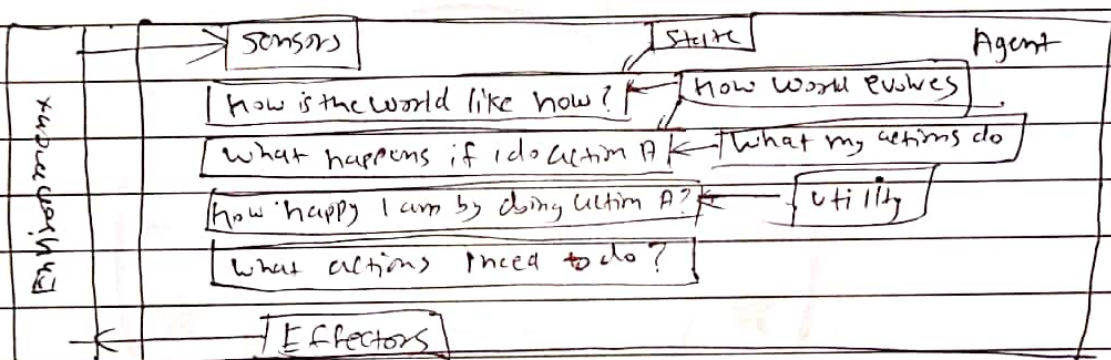 Sensors State Agent
how is the world like now? how world evolves
What happens if I do action A What my actions do
how happy I am by doing action A? utility
What actions I need to do?
Effectors
Environmx